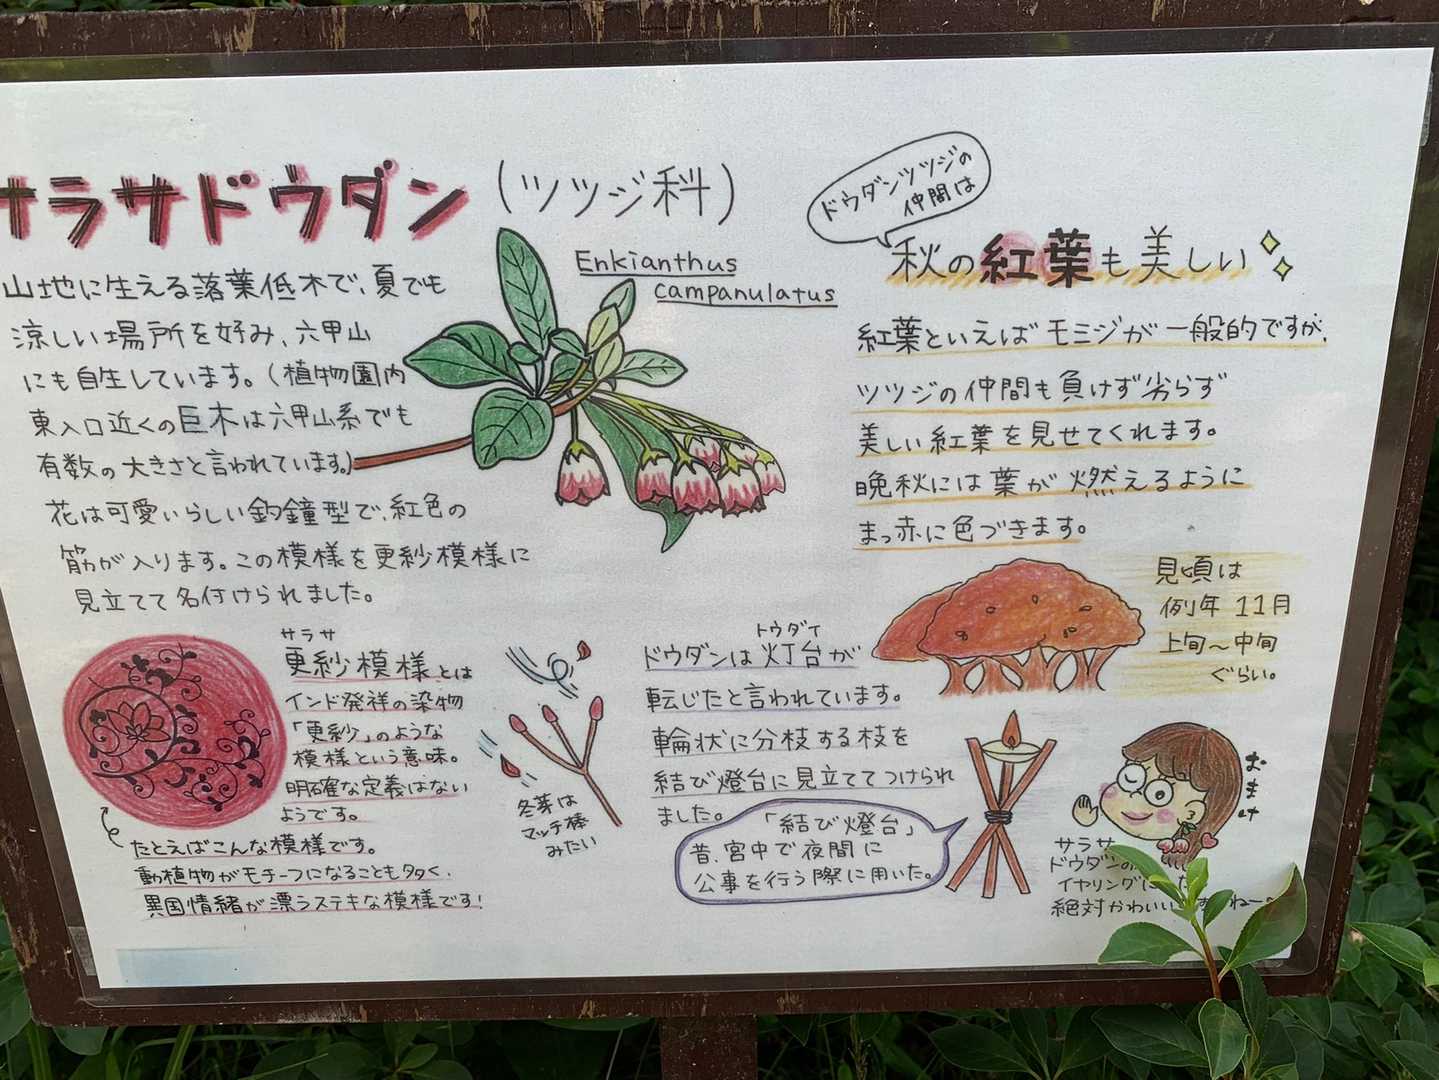 サラサドウダン (ツツジ科)
Enkianthus
campanulatus
山地に生える落葉低木で、夏でも
涼しい場所を好み、六甲山
にも自生しています。(植物園内
東入口近くの巨木は六甲山系でも
有数の大きさと言われています。)
花は可愛いらしい釣鐘型で、紅色の
筋が入ります。この模様を更紗模様に
見立てて名付けられました。
サラサ
更紗模様とは
インド発祥の染物
「更紗」のような
模様という意味。
明確な定義はない
ようです。
たとえばこんな模様です。
動植物がモチーフになることも多く、
異国情緒が漂うステキな模様です!
冬芽は
マッチ棒
みたい
ドウダンツツジの
仲間は
秋の紅葉も美しい
紅葉といえばモミジが一般的ですが、
ツツジの仲間も負けず劣らず
美しい紅葉を見せてくれます。
晩秋には葉が燃えるように
まっ赤に色づきます。
見頃は
例年 11月
上旬〜中旬
ぐらい。
トウダイ
ドウダンは灯台が
転じたと言われています。
輪状に分枝する枝を
結び燈台に見立ててつけられ
ました。
「結び燈台」
昔、宮中で夜間に
公事を行う際に用いた。
おまけ
サラサ
ドウダンの
イヤリングに
絶対かわいい